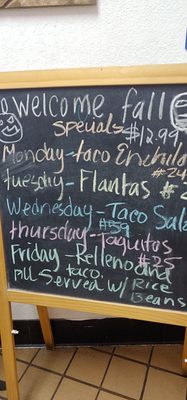 welcome fall
specials $12.99
Monday-taco Enchila
#24
Tuesday-Flautas #2
Wednesday-Taco Sala
#59
thursday-Taquitos
#25
Friday-Relleno and
taco.
All Served w/ Rice
Beans